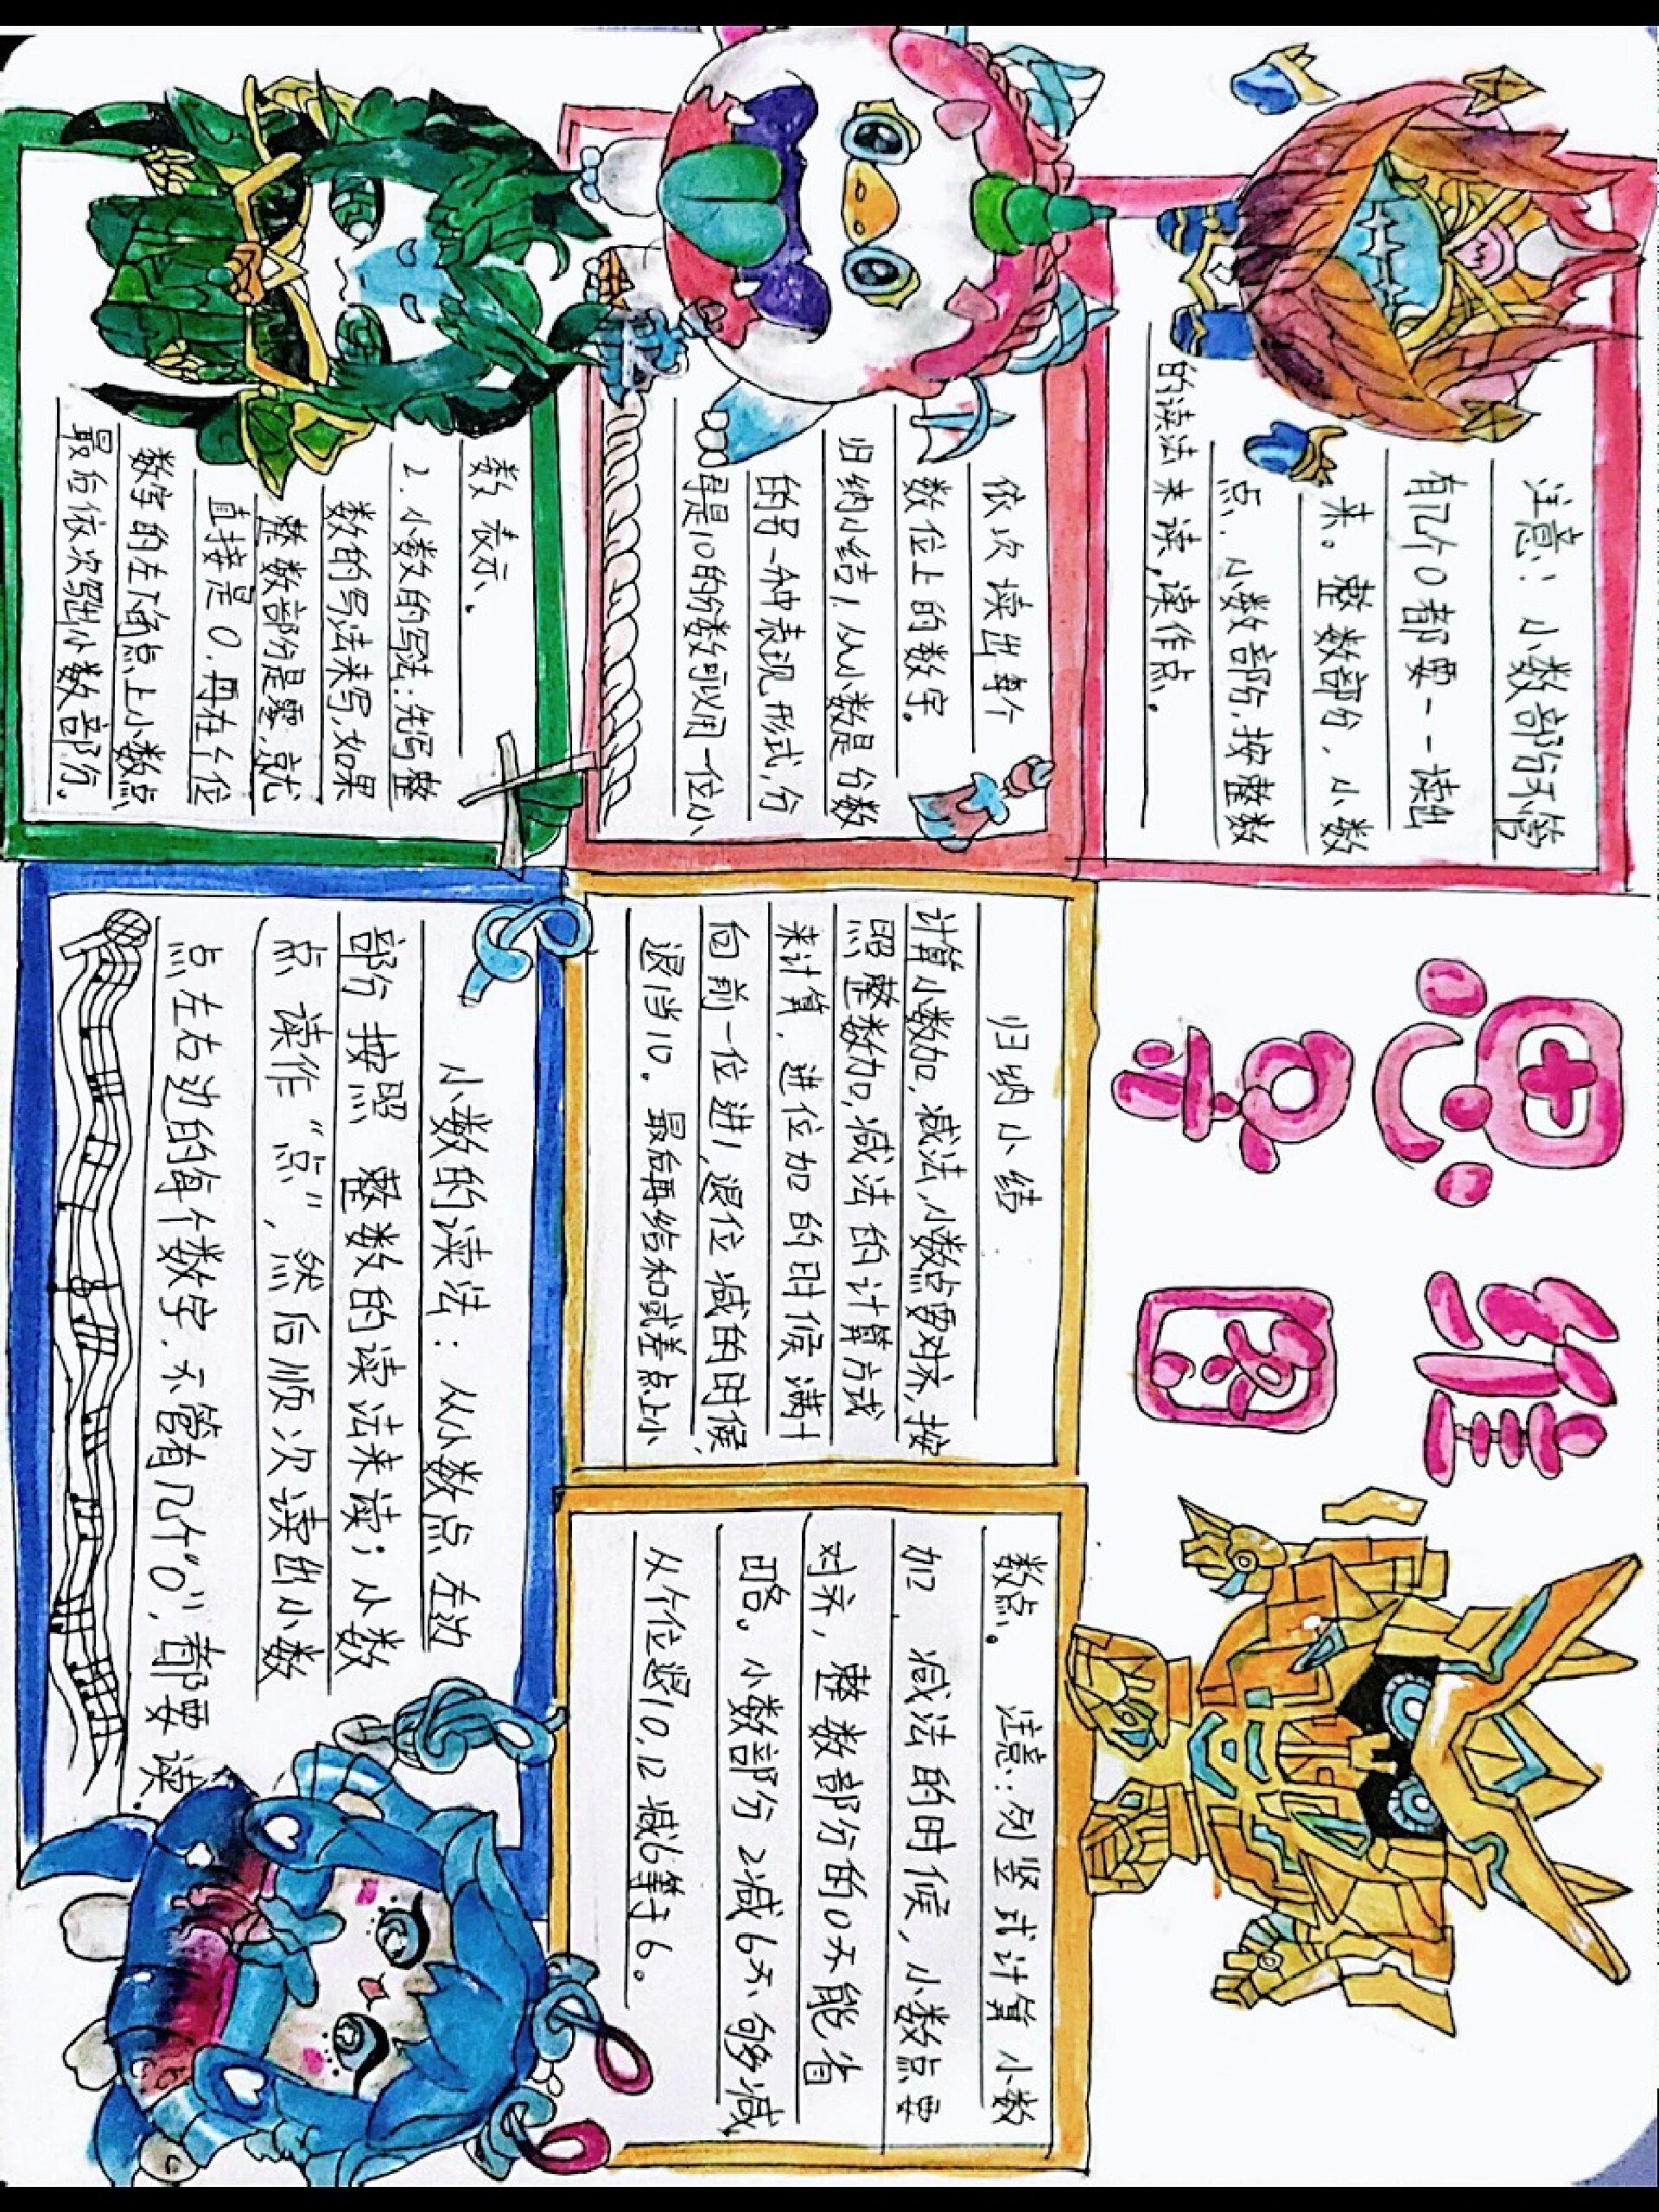 思维
导图
注意：小数部份不管
有几个0都要一一读出
来。整数部份，小数
点，小数部份，按整数
的读法来读，读作点。
依次读出每个
数位上的数字。
归纳小结1.从小数是分数
的另一种表现形式，分
母是10的分数可以用一位小
数表示。
2.小数的写法：先写整
数的写法来写，如果
整数部份是零，就
直接是0.再在个位
数字的右下角点上小数点
最后依次写出小数部份.
归纳小结
计算小数加，减法，小数点要对齐，按
照整数加，减法的计算方式
来计算，进位加的时候满十
向前一位进1，退位减的时候
退1当10。最后再给和或差点上小
数点。 注意：列竖式计算小数
加、减法的时候，小数点要
对齐，整数部分的0不能省
略。小数部分2减6不够减
从个位退10，12减6等于6。
小数的读法：从小数点左边
部份按照整数的读法来读；小数
点读作“点”，然后顺次读出小数
点左右边的每个数字.不管有几个“0”，都要读.